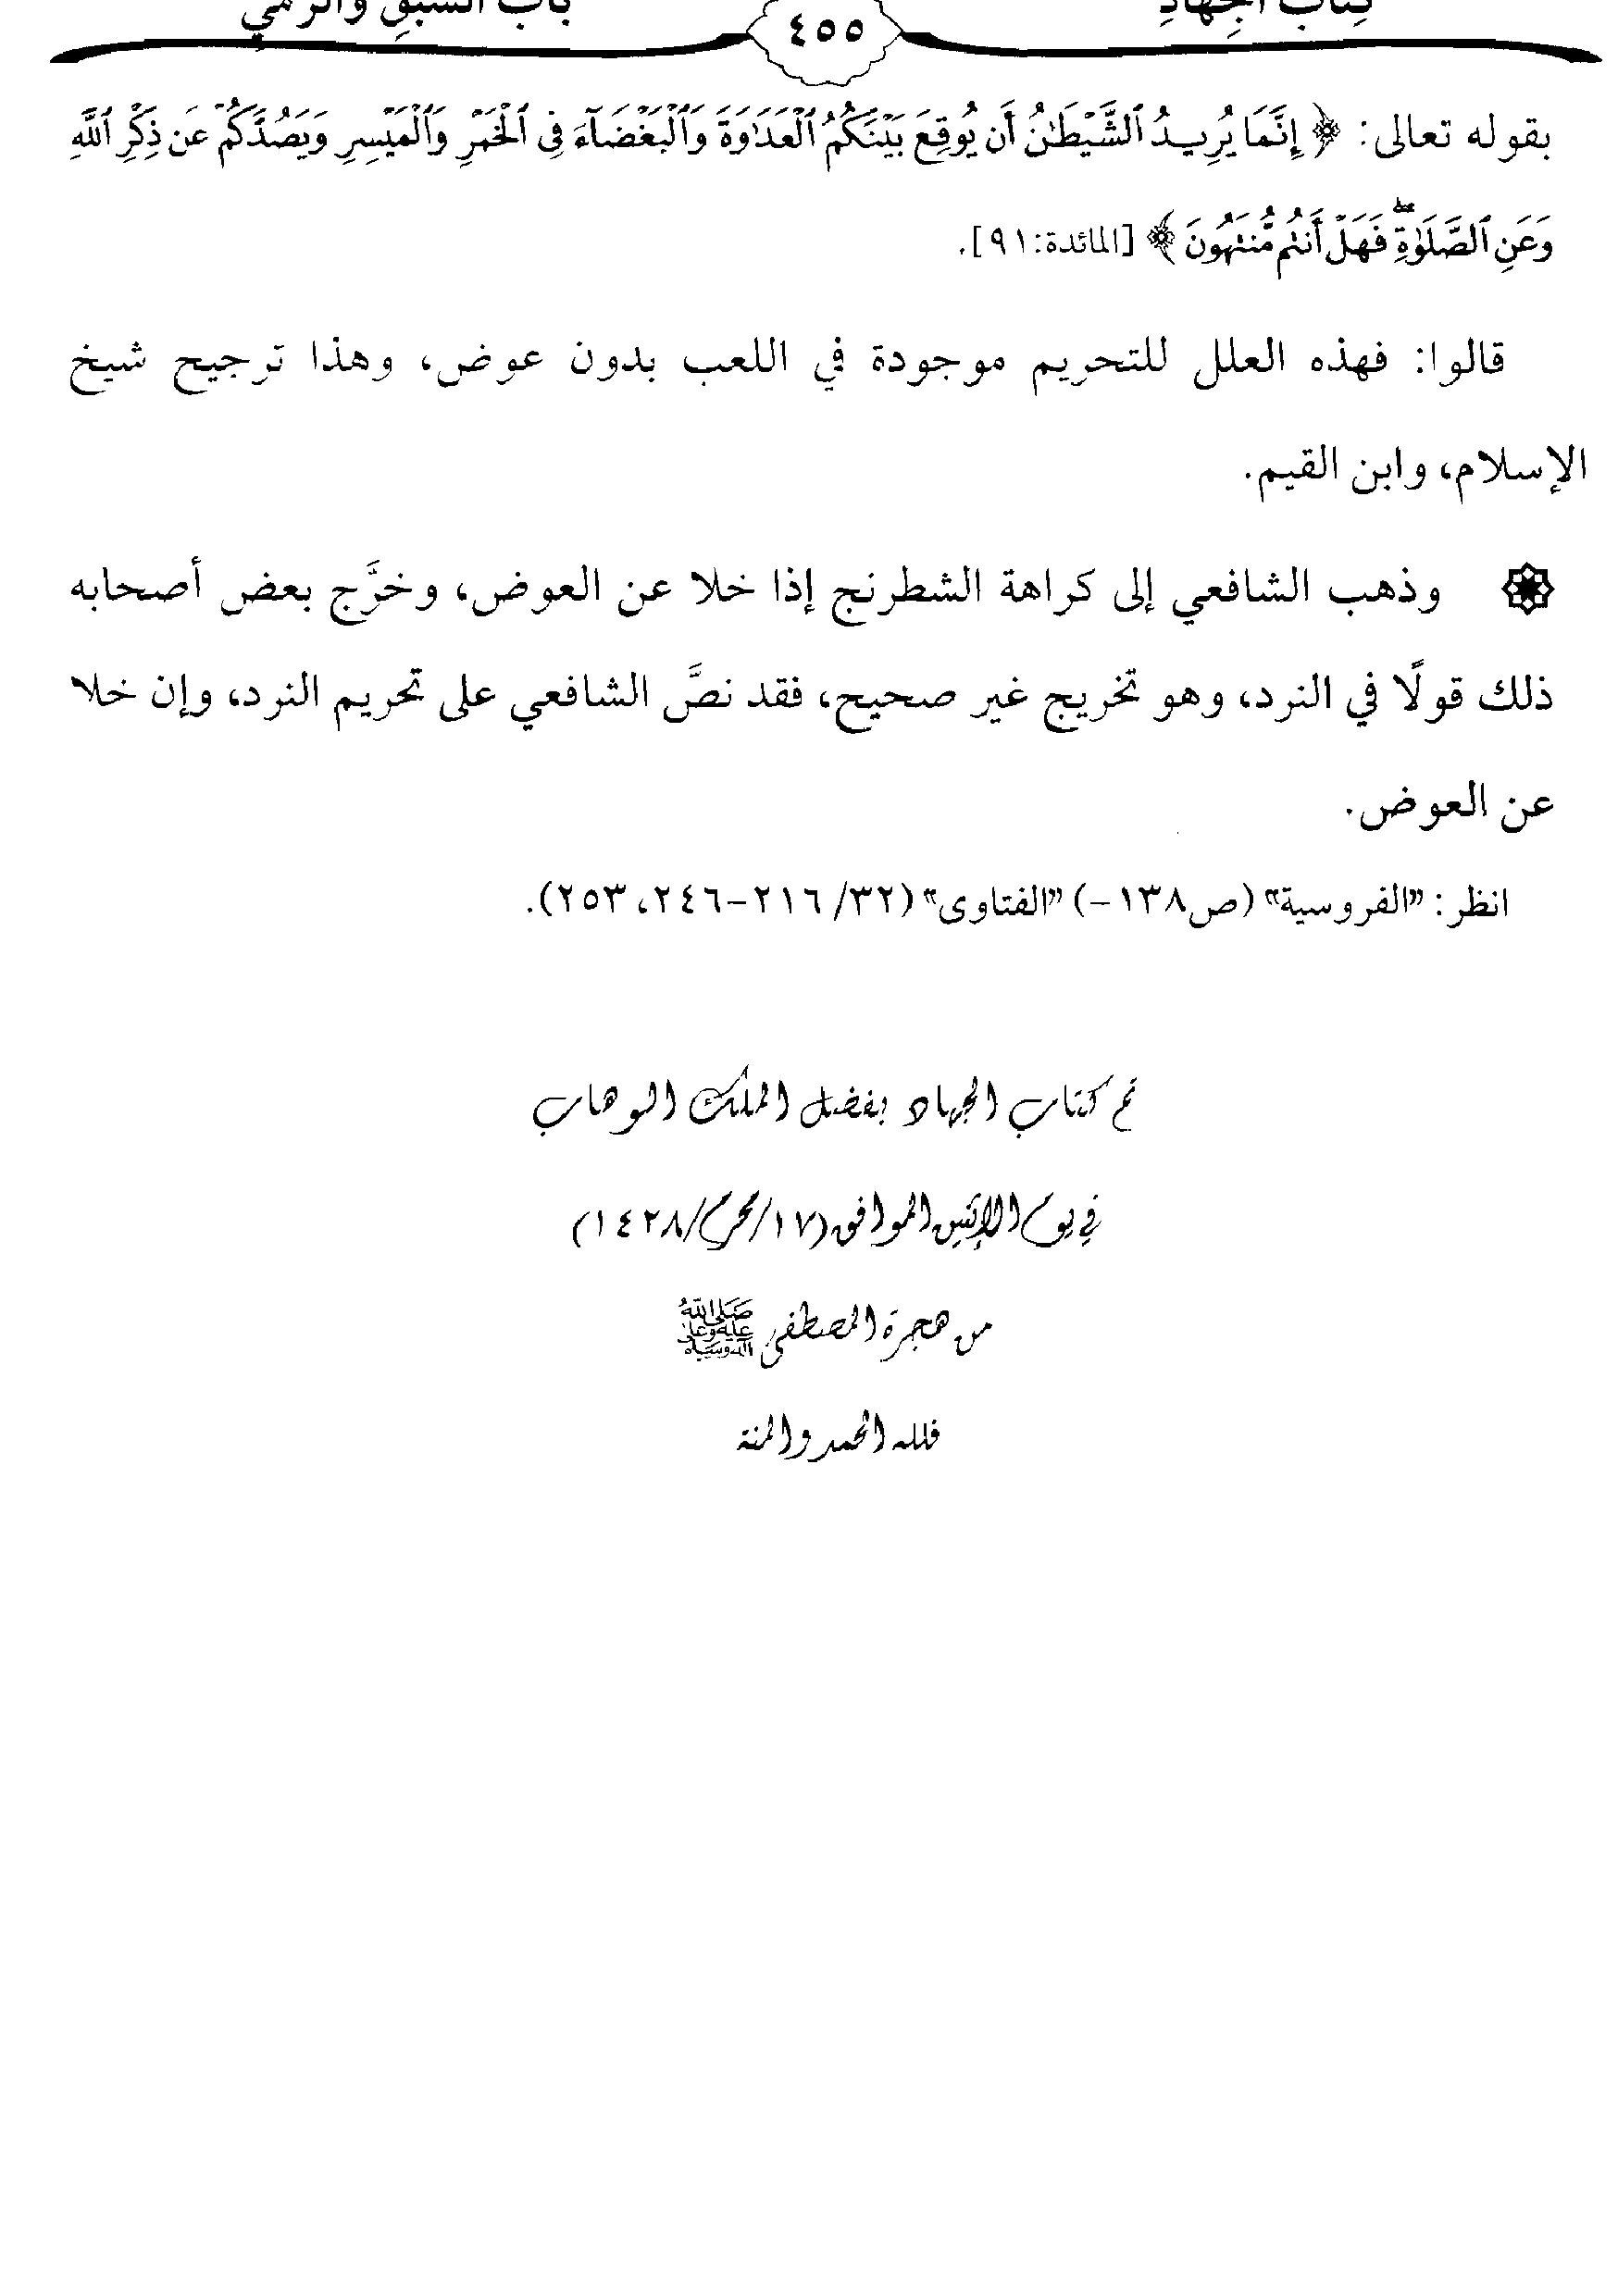 كِتَابُ الْجِهَادِ ٤٥٥ بَابُ السَّبْقِ وَالرَّمْيِ
بقوله تعالى: ﴿إِنَّمَا يُرِيدُ ٱلشَّيْطَٰنُ أَن يُوقِعَ بَيْنَكُمُ ٱلْعَدَٰوَةَ وَٱلْبَغْضَآءَ فِى ٱلْخَمْرِ وَٱلْمَيْسِرِ وَيَصُدَّكُمْ عَن ذِكْرِ ٱللَّهِ
وَعَنِ ٱلصَّلَوٰةِ ۖ فَهَلْ أَنتُم مُّنتَهُونَ﴾ [المائدة:٩١].
قالوا: فهذه العلل للتحريم موجودة في اللعب بدون عوض، وهذا ترجيح شيخ
الإسلام، وابن القيم.
وذهب الشافعي إلى كراهة الشطرنج إذا خلا عن العوض، وخرَّج بعض أصحابه
ذلك قولًا في النرد، وهو تخريج غير صحيح، فقد نصَّ الشافعي على تحريم النرد، وإن خلا
عن العوض.
انظر: "الفروسية" (ص١٣٨-) "الفتاوى" (٣٢/ ٢١٦-٢٤٦، ٢٥٣).
تم كتاب الجهاد بفضل الملك الوهاب
في يوم الإثنين الموافق (١٧/محرم/١٤٢٨)
من هجرة المصطفى صلى الله عليه وعلى آله وسلم
فلله الحمد والمنة